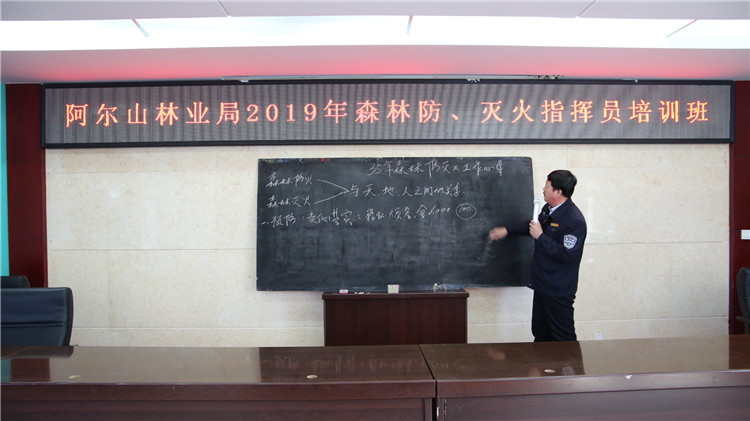 阿尔山林业局2019年森林防、灭火指挥员培训班
35年森林防灭火工作
森林防火
与天地人之间的关系
森林灭火
一、预防：责任